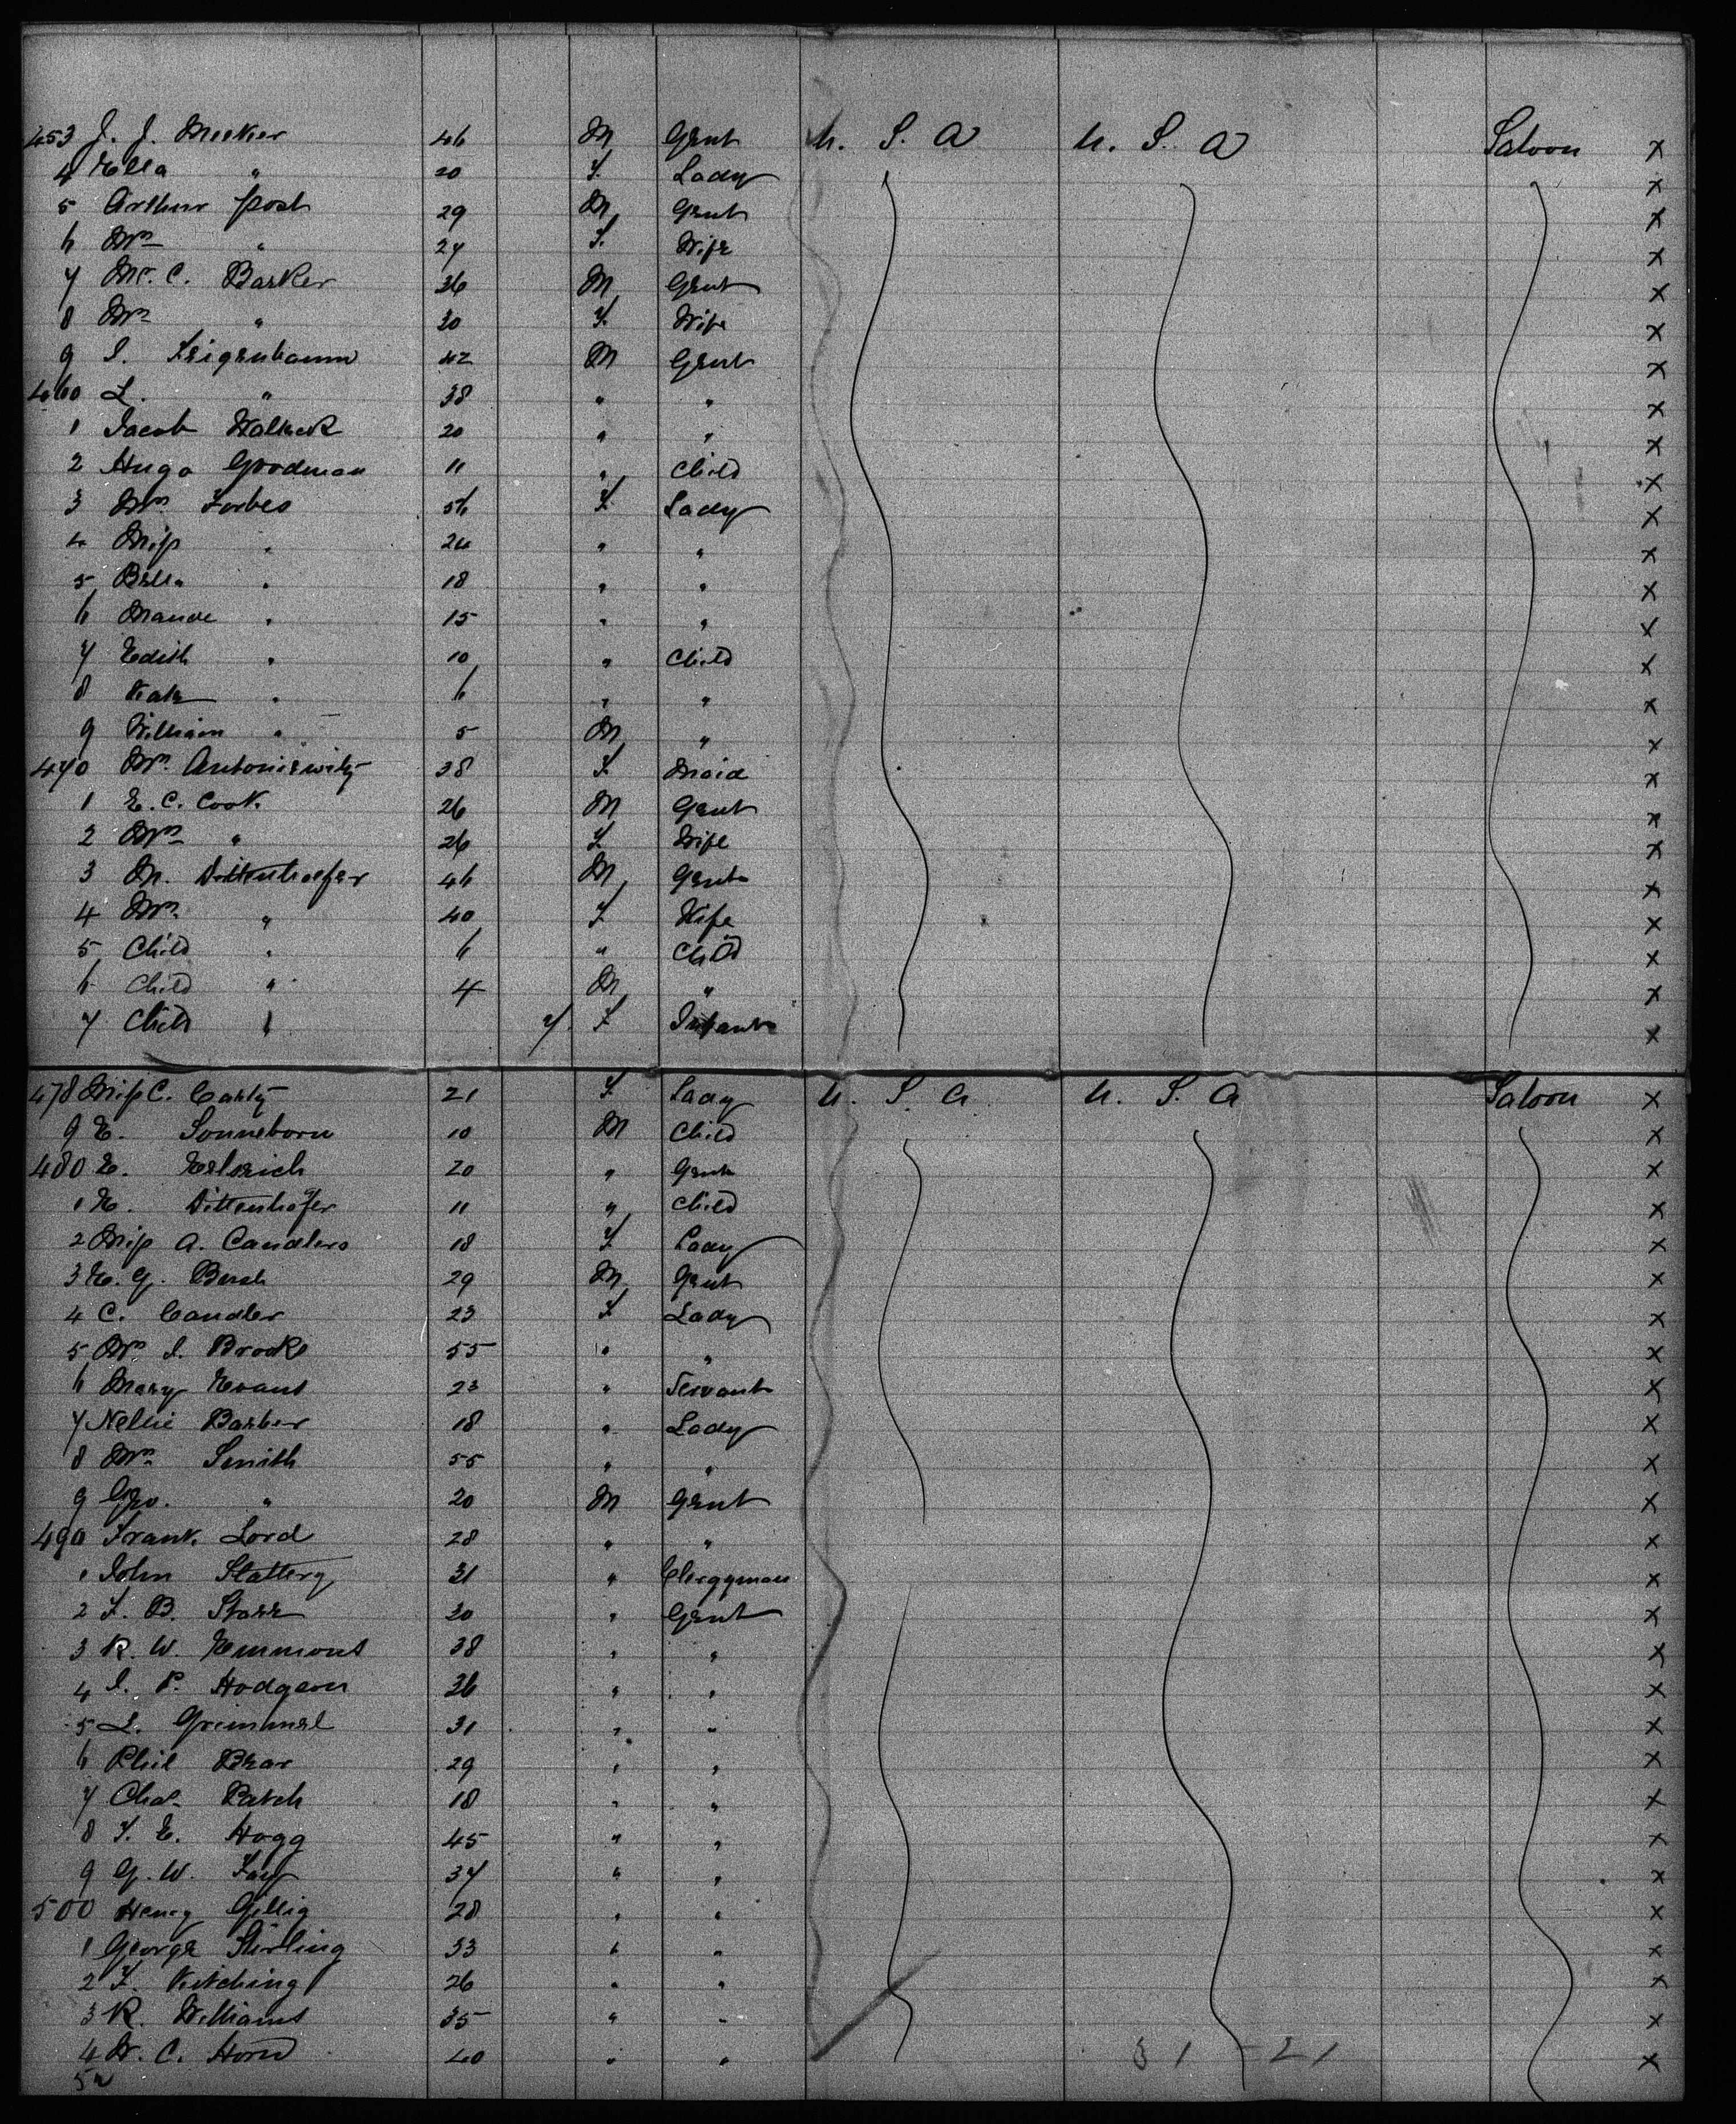 453 J. J. Meeker 46 M Gent U. S. A U. S. A Saloon x
4 Ella " 20 F. Lady x
5 Arthur Post 29 M Gent x
6 Mrs " 24 F. Wife x
7 Mr. C. Barker 36 M Gent x
8 Mrs " 30 F. Wife x
9 I. Feigenbaum 42 M Gent x
460 L. " 38 " " x
1 Jacob 20 " " x
2 Hugo Goodman 11 " Child x
3 Mrs Forbes 56 F Lady x
4 Miss " 24 " " x
5 Bella " 18 " " x
6 Maude " 15 " " x
7 Edith " 10 " Child x
8 Kate " 6 " " x
9 William " 5 M " x
470 Mrs Antoniewitz 38 F. Maid x
1 E. C. Cook 26 M Gent x
2 Mrs " 26 F. Wife x
3 M. Dittenhoefer 46 M Gent x
4 Mrs " 40 F Wife x
5 Child " 6 " Child x
6 Child " 4 M " x
7 Child " 7. F Infant x
478 Miss C. Carty 21 F. Lady U. S. A U. S. A Saloon x
9 E. Sonneborn 10 M Child x
480 E. 20 " Gent x
1 E. Dittenhofer 11 " Child x
2 Miss A. Candlers 18 F Lady x
3 E. G. Bush 29 M Gent x
4 C. Candler 23 F Lady x
5 Mrs I. Brooke 55 " " x
6 Mary Evans 23 " Servant x
7 Nellie Barber 18 " Lady x
8 Mrs Smith 55 " " x
9 Geo. " 20 M Gent x
490 Frank Lord 28 " " x
1 John Slattery 31 " Clergyman x
2 F. B. Starr 30 " Gent x
3 R. W. Emmons 38 " " x
4 I. P. Hodgson 36 " " x
5 L. Grimmel 31 " " x
6 Phil Bear 29 " " x
7 Chas. Patch 18 " " x
8 T. E. Hogg 45 " " x
9 G. W. Fay 37 " " x
500 Henry Gillig 28 " " x
1 George Stirling 33 " " x
2 F. Kitching 26 " " x
3 R. Williams 35 " " x
4 W. C. Horn 40 " " 31 - 21 x